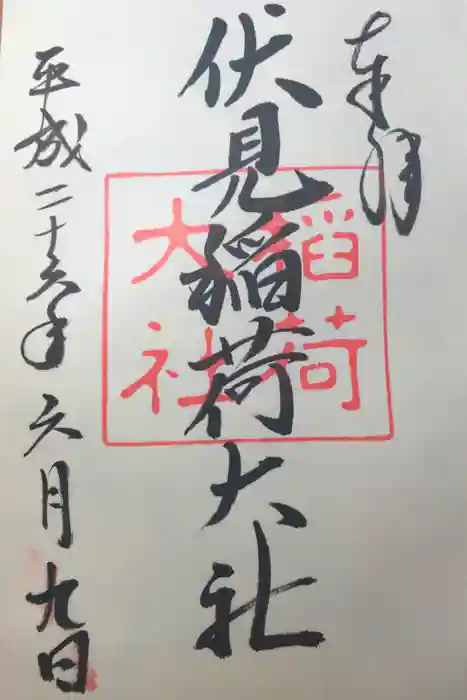 奉拝
伏見稲荷大社
稲荷
大社
平成二十六年六月九日